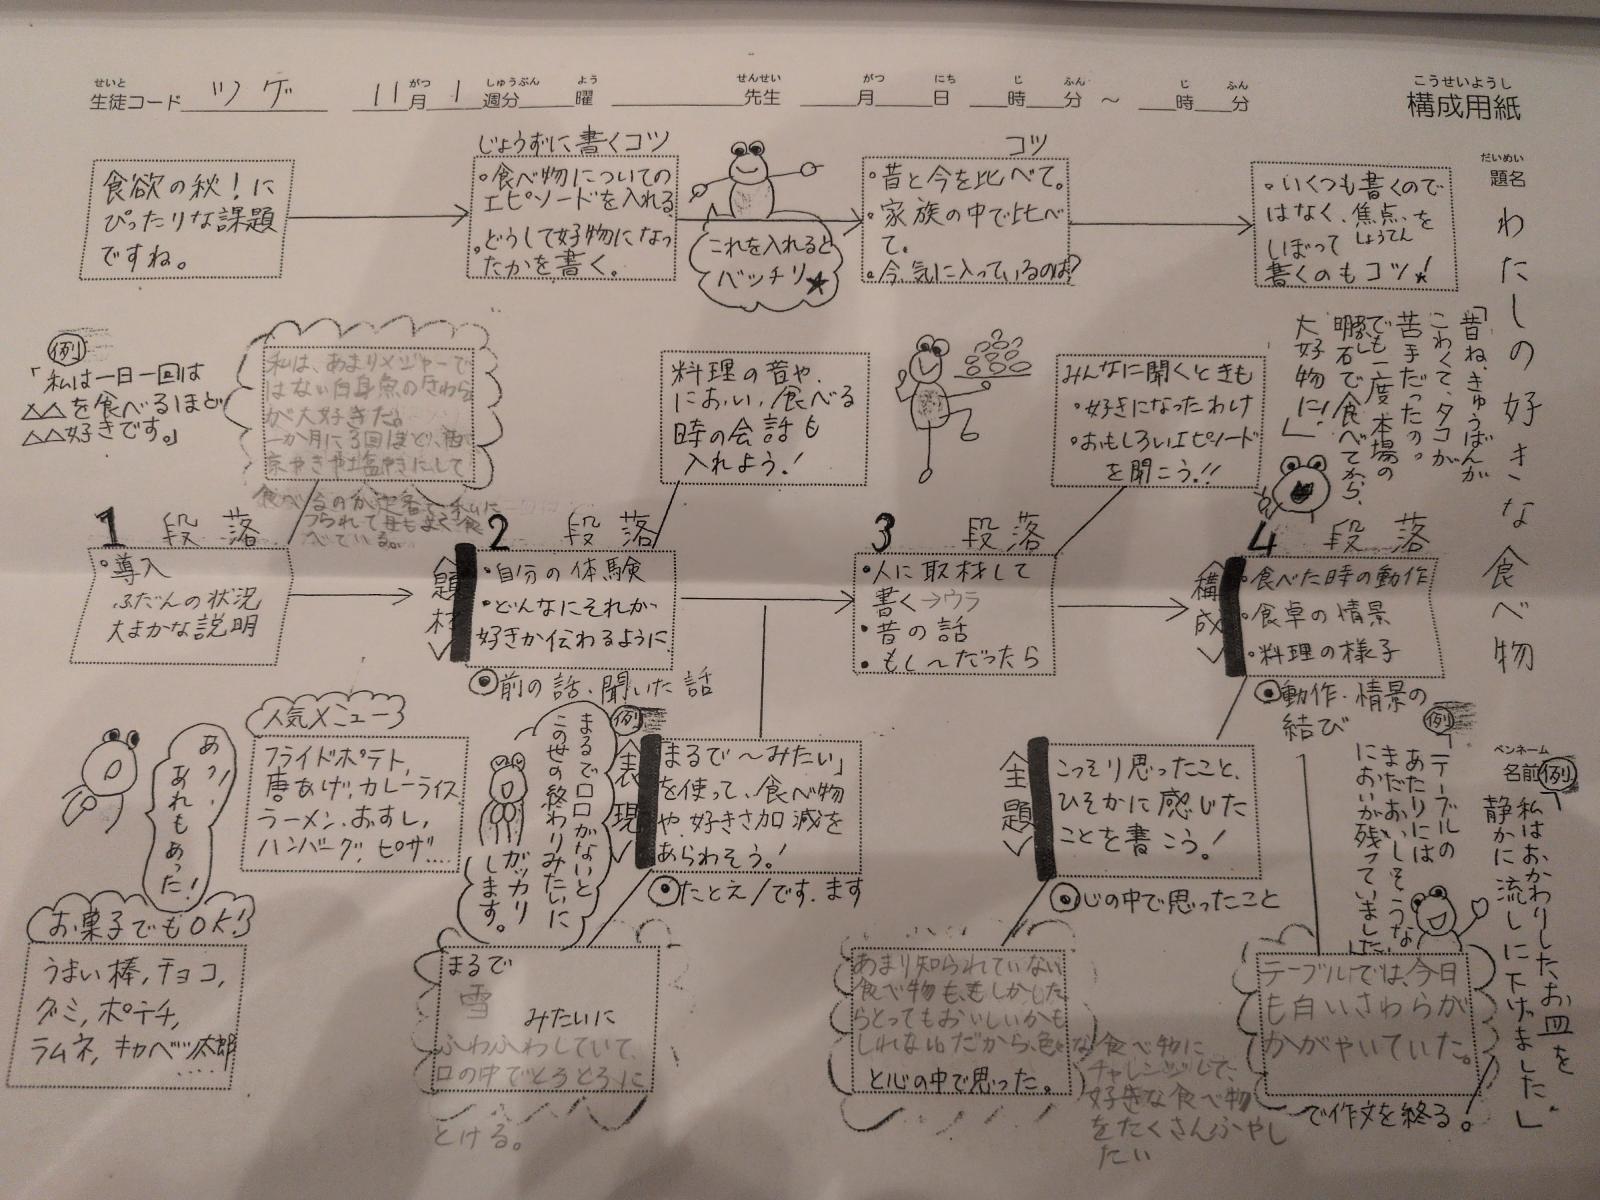 せいと
生徒コード ツゲ 11月 1週分 曜 先生 月 日 時 分 ～ 時 分
がつ しゅうぶん よう せんせい がつ にち じ ふん じ ふん
こうせいようし
構成用紙
だいめい
題名
わたしの好きな食べ物
食欲の秋！に
ぴったりな課題
ですね。
じょうずに書くコツ
・食べ物についての
エピソードを入れる
・どうして好物になっ
たかを書く。
これを入れると
バッチリ★
コツ
・昔と今を比べて。
・家族の中で比べ
て。
・今、気に入っているのは？
・いくつも書くので
はなく、焦点を
しょうてん
しぼって
書くのもコツ！
例
「私は一日一回は
△△を食べるほど
△△好きです。」
私は、あまりメジャーで
はない白身魚のさわら
が大好きだ。
一か月に3回ほど、西
京やきや塩やきにして
食べるのが定番で、私に
つられて母もよく食
べている。
料理の音や、
におい、食べる
時の会話も
入れよう！
みんなに聞くときも
・好きになったわけ
・おもしろいエピソード
を聞こう！！
「昔ね、きゅうばんが
こわくて、タコが
苦手だったの。
でも一度本場の
明石で食べてから、
大好物に！」
1 段落
・導入
ふだんの状況
大まかな説明
2 段落
題材
・自分の体験
・どんなにそれが
好きか伝わるように
◎前の話、聞いた話
3 段落
・人に取材して
書く→ウラ
・昔の話
・もし～だったら
4 段落
構成
・食べた時の動作
・食卓の情景
・料理の様子
◎動作・情景の
結び
あっ！
あれもあった！
人気メニュー
フライドポテト、
唐あげ、カレーライス
ラーメン、おすし、
ハンバーグ、ピザ....
お菓子でもOK！
うまい棒、チョコ、
グミ、ポテチ、
ラムネ、キャベツ太郎
....
例
まるで口口がないと
この世の終わりみたいに
ガッカリ
します。
表現
「まるで～みたい」
を使って、食べ物
や、好きさ加減を
あらわそう！
◎たとえ／です、ます
まるで
雪
みたいに
ふわふわしていて、
口の中でとろとろに
とける。
主題
こっそり思ったこと、
ひそかに感じた
ことを書こう！
◎心の中で思ったこと
あまり知られていない
食べ物も、もしかした
らとってもおいしいかも
しれない。だから、色々な食べ物に
チャレンジして、
好きな食べ物
をたくさんふやし
たい
と心の中で思った。
例
「テーブルの
あたりには
まだおいしそうな
においが残っていました」
テーブルでは、今日
も白いさわらが
かがやいていた。
で作文を終る。
ペンネーム
名前
例
「私はおかわりしたお皿を
静かに流しに下げました。」